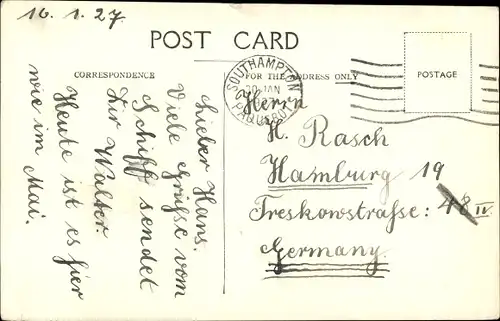 16.1.27
POST CARD
CORRESPONDENCE
FOR THE ADDRESS ONLY
POSTAGE
SOUTHAMPTON
20 JAN
PAQUEBOT
Lieber Hans.
Viele Grüsse vom
Schiff sendet
Dir Walter.
Heute ist es hier
wie im Mai.
Herrn
H. Rasch
Hamburg 19
Treskowstrasse: 48 IV.
Germany.